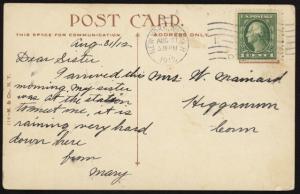 POST CARD.
THIS SPACE FOR COMMUNICATION
ADDRESS ONLY.
Aug. 31/12
Dear Sister
I arrived this
morning, my sister
was at the station
to meet me, it is
raining very hard
down here
from
Mary
Mrs W. Mainard
Higganum
Conn
AUG 31
1912